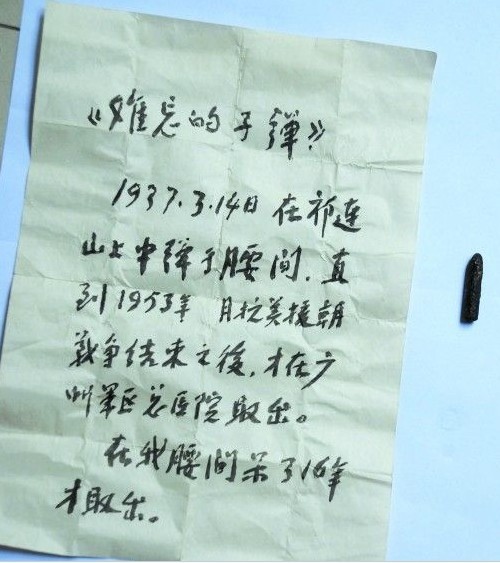 《难忘的子弹》
1937.3.14日在祁连
山上中弹于腰间，直
到1953年 月抗美援朝
战争结束之後，才在广
州军区总医院取出。
在我腰间呆了16年
才取出。